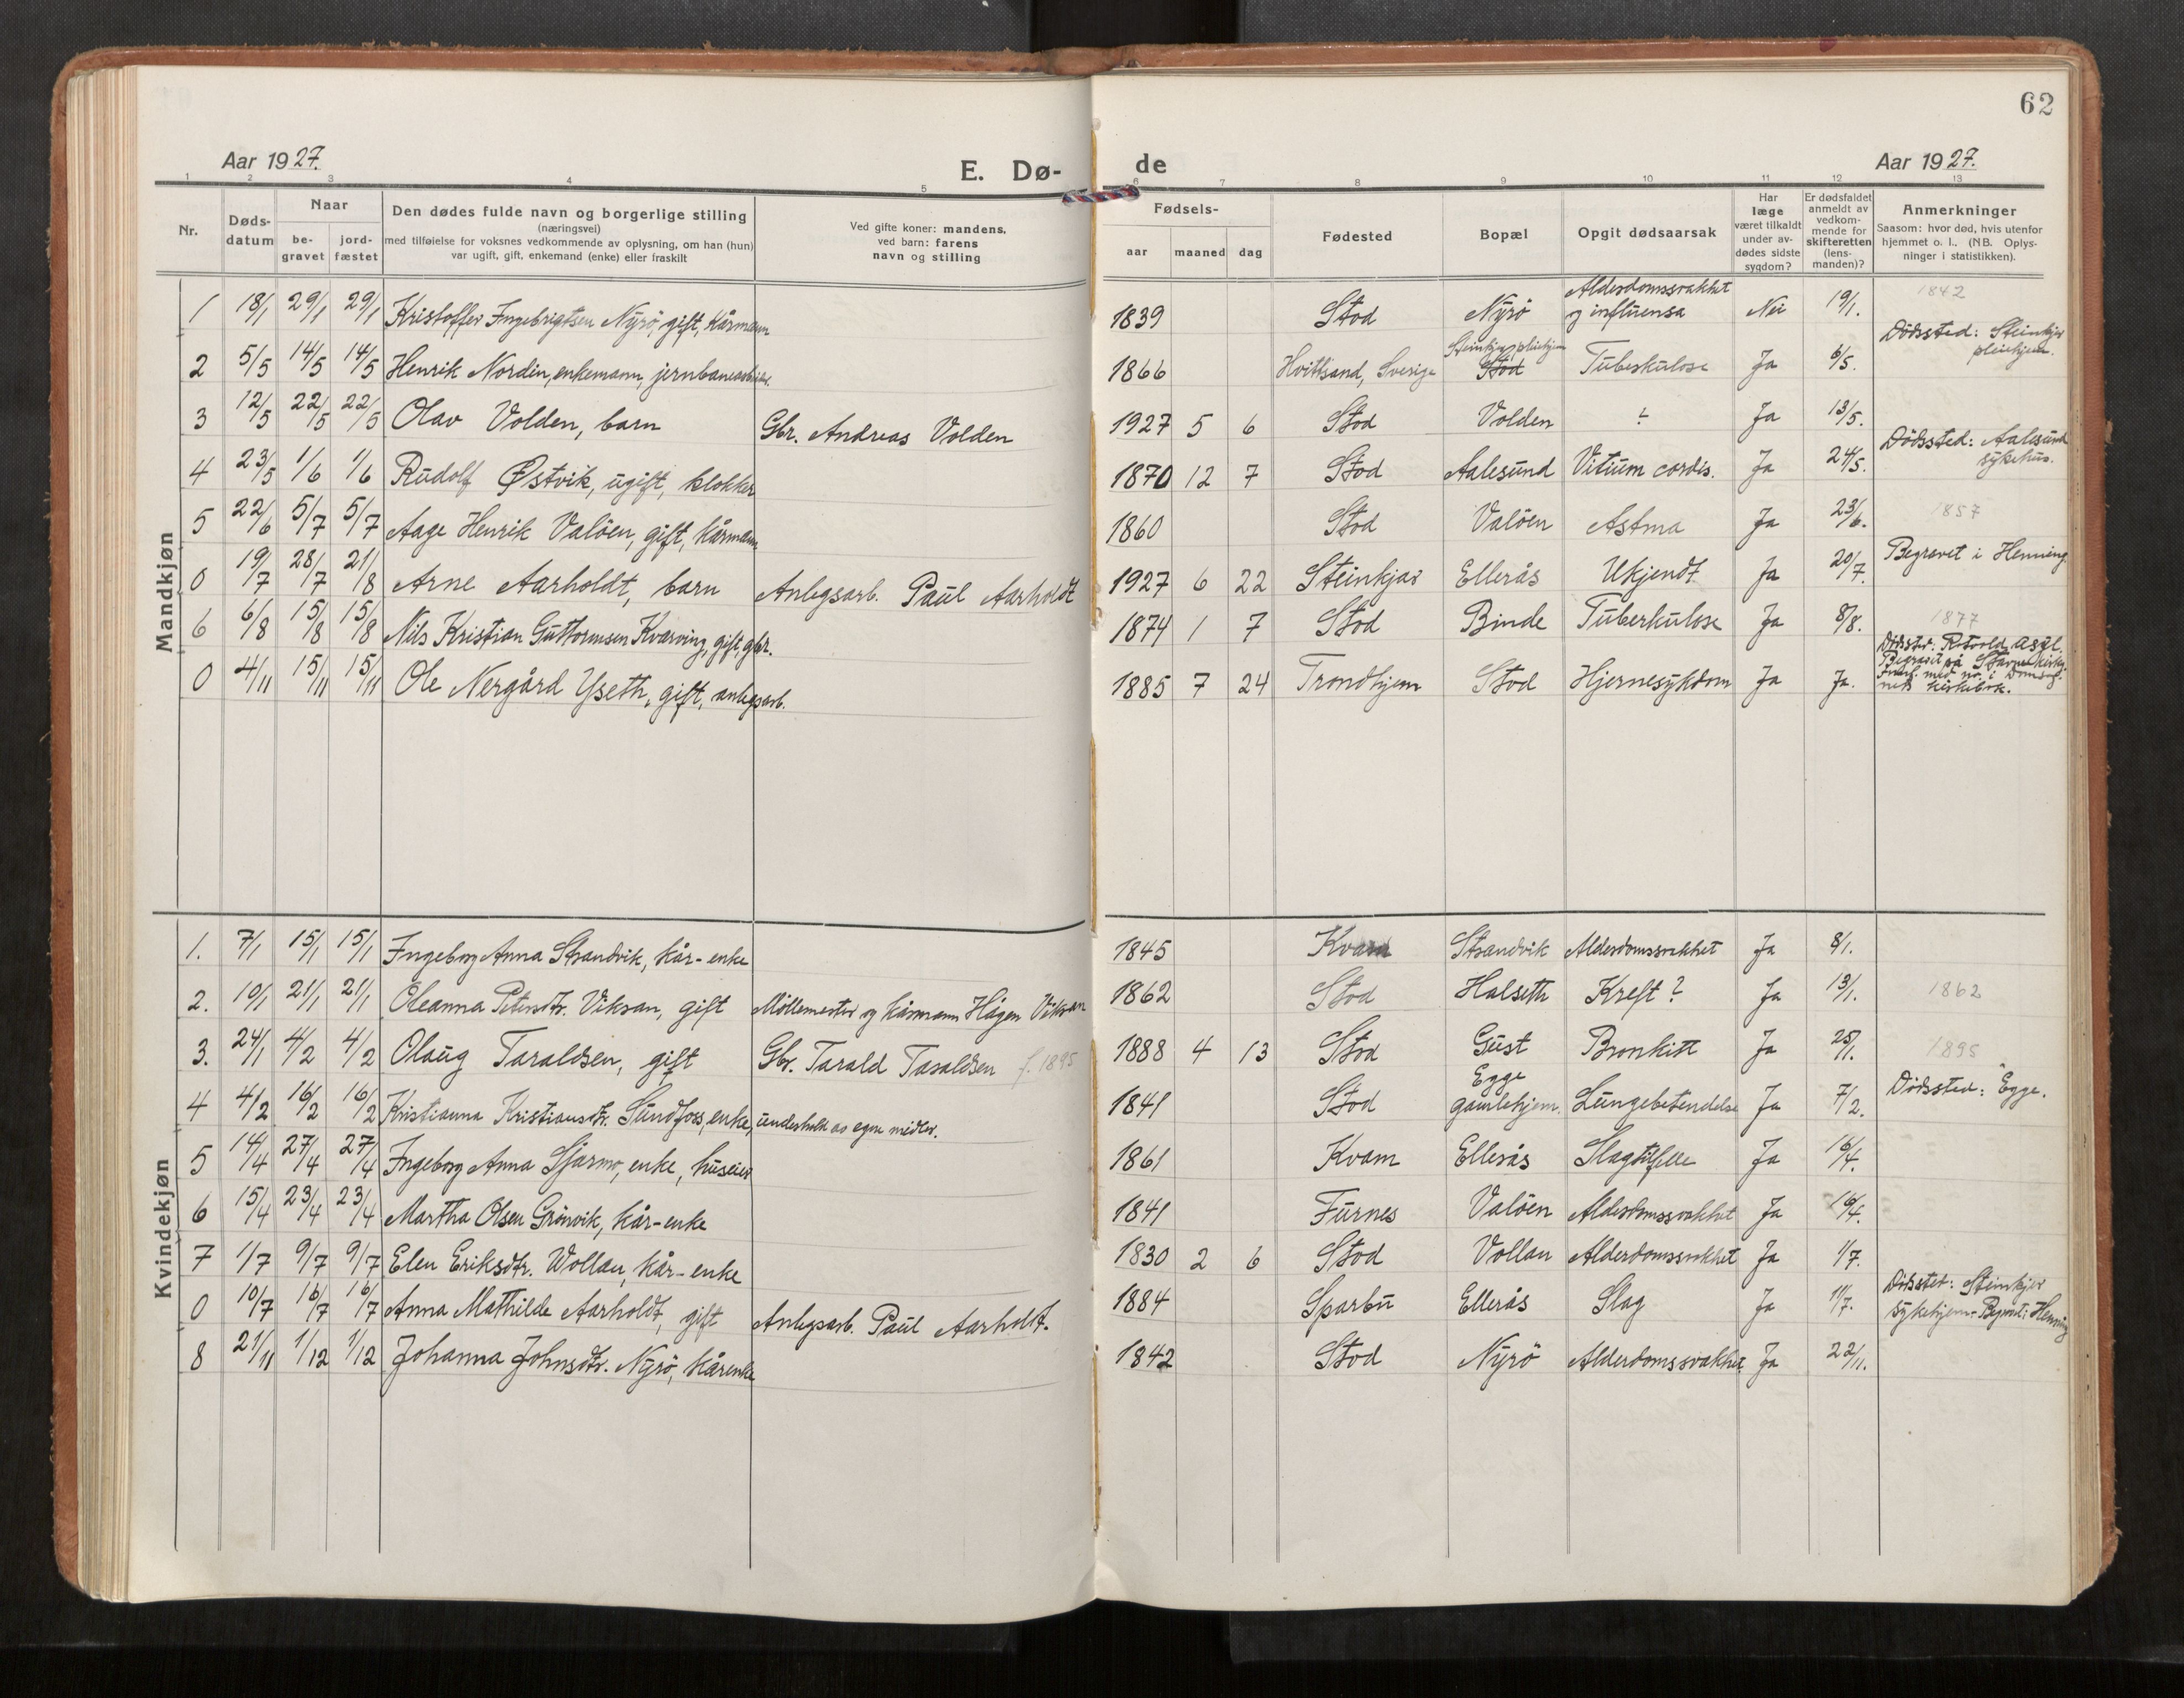 62
Aar 1927.
E. Dø-
de
Aar 1927.
1 2 3 4 5 6 7 8 9 10 11 12 13
Nr.
Døds-
datum
Naar
be-
gravet
jord-
fæstet
Den dødes fulde navn og borgerlige stilling
(næringsvei)
med tilføielse for voksnes vedkommende av oplysning, om han (hun)
var ugift, gift, enkemand (enke) eller fraskilt
Ved gifte koner: mandens,
ved barn: farens
navn og stilling
Fødsels-
aar maaned dag
Fødested
Bopæl
Opgit dødsaarsak
Har
læge
været tilkaldt
under av-
dødes sidste
sygdom?
Er dødsfaldet
anmeldt av
vedkom-
mende for
skifteretten
(lens-
manden)?
Anmerkninger
Saasom: hvor død, hvis utenfor
hjemmet o. l., (NB. Oplys-
ninger i statistikken).
Mandkjøn
1 18/1 29/1 29/1 Kristoffer Ingebrigtsen Nyrö, gift, kårmann 1839 Stod Nyrö Alderdomssvakhet og influensa Nei 19/1. 1842
2 5/5 14/5 14/5 Henrik Nordin, enkemann, jernbanearbeider. 1866 Hvittsand, Sverige Steinkjer pleiehjem Stod Tuberkulose Ja 6/5. Dödssted: Steinkjer pleiehjem.
3 12/5 22/5 22/5 Olav Volden, barn Gbr. Andreas Volden 1927 5 6 Stod Volden ? Ja 13/5.
4 23/5 1/6 1/6 Rudolf Østvik, ugift, klokker 1870 12 7 Stod Aalesund Vitium cordis. Ja 24/5. Dödssted: Aalesund sykehus.
5 22/6 5/7 5/7 Aage Henrik Valöen, gift, kårmann 1860 Stod Valöen Astma Ja 23/6. 1857
0 19/7 28/7 21/8 Arne Aarholdt, barn Anlegsarb. Paul Aarholdt 1927 6 22 Steinkjer Ellerås Ukjendt Ja 20/7. Begravet i Henning
6 6/8 15/8 15/8 Nils Kristian Guttormsen Kvarving, gift, gbr. 1874 1 7 Stod Binde Tuberkulose Ja 8/8. 1877
0 4/11 15/11 15/11 Ole Nergård Yseth, gift, anlegsarb. 1885 7 24 Trondhjem Stod Hjernesykdom Ja Ja. Dödsst: Rotvold asyl.
Begravet på Stavne kirkeg.
Indf. med no. i Domsog-
nets kirkebok.
Kvindekjøn
1. 7/1 15/1 15/1 Ingeborg Anna Strandvik, kår-enke 1845 Kvam Strandvik Alderdomssvakhet Ja 8/1.
2. 10/1 21/1 21/1 Oleanna Petersdtr. Viksan, gift Möllemester og kårmann Hågen Viksan 1862 Stod Halseth Kreft? Ja 13/1. 1862
3. 24/1 4/2 4/2 Olaug Taraldsen, gift Gbr. Tarald Taraldsen f. 1895 1888 4 13 Stod Gust Bronkitt Ja 25/1. 1895
4 4/2 16/2 16/2 Kristianna Kristiansdtr. Sundfoss, enke, underholdt av egne midler. 1841 Stod Egge gamlehjem. Lungebetendelse Ja 7/2. Dödssted: Egge.
5 14/4 27/4 27/4 Ingeborg Anna Sjarmo, enke, huseier 1861 Kvam Ellerås Slagtilfelle Ja 16/4.
6 15/4 23/4 23/4 Martha Olsen Grönvik, kår-enke 1841 Furnes Valöen Alderdomssvakhet Ja 16/4.
7 1/7 9/7 9/7 Elen Eriksdtr. Wollan, kår-enke 1830 2 6 Stod Vollan Alderdomssvakhet Ja 1/7.
0 10/7 16/7 16/7 Anna Mathilde Aarholdt, gift Anlegsarb. Paul Aarholdt. 1884 Sparbu Ellerås Slag Ja 11/7. Dödssted: Steinkjer sykehjem. Begravet i Henning
8 21/11 1/12 1/12 Johanna Johnsdtr. Nyrö, kårenke 1842 Stod Nyrö Alderdomssvakhet Ja 22/11.